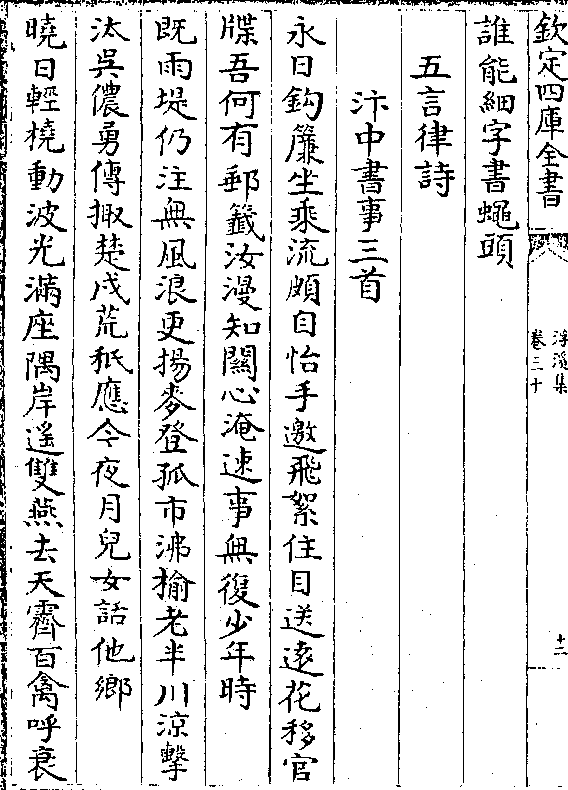 欽定四庫全書
浮溪集
卷三十
十二
誰能細字書蠅頭
五言律詩
汴中書事三首
永日鈎簾坐乘流頗自怡手邀飛絮住目送遠花移官
牒吾何有郵籤汝漫知關心淹速事無復少年時
既雨堤仍注無風浪更揚麥登孤市沸榆老半川涼擊
汰吳儂勇傳掫楚戍荒秪應今夜月兒女話他鄉
曉日輕橈動波光滿座隅岸遙雙燕去天霽百禽呼衰